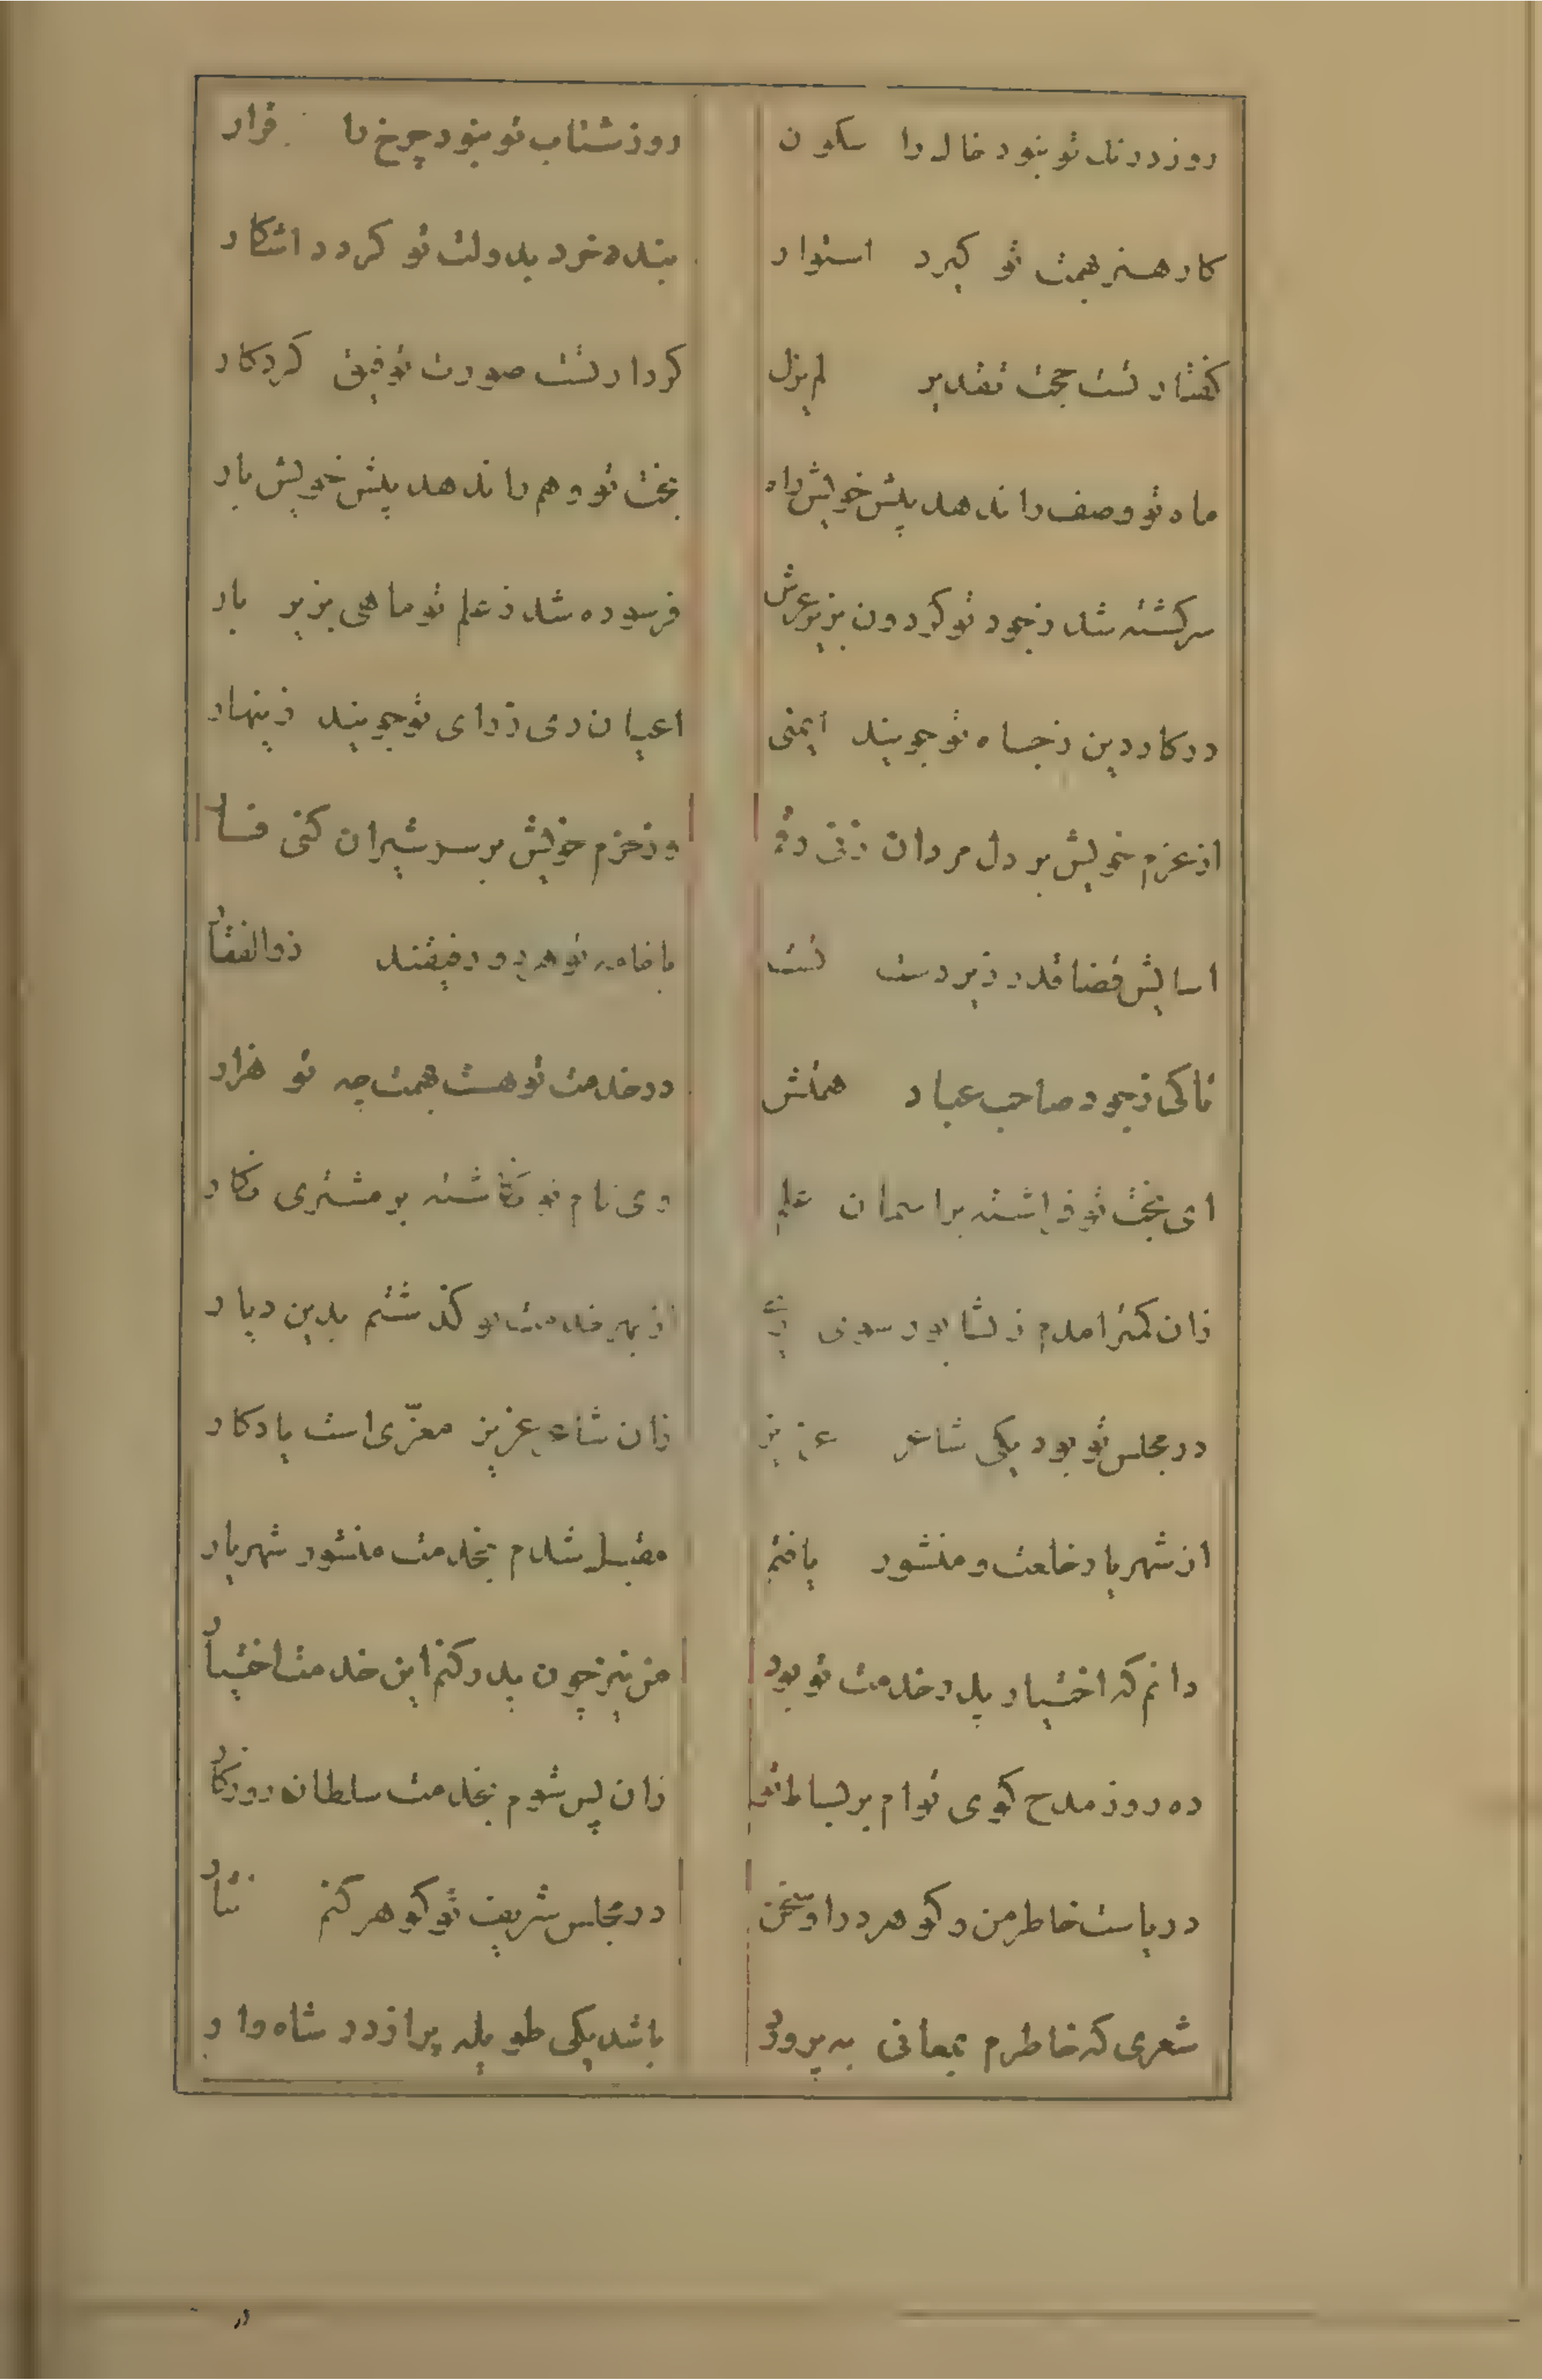 روز درنك تو نبود خاك را سكون روز شتاب تو نبود چرخ را قرار
كار هنر همت تو كيرد استوار بند خرد بدولت تو كردد اشكار
كفتار تست حجت تقدير لم يزل كردار تست صورت توفيق كردكار
ماه تو وصف را ندهد پيش خويش راه بخت تو وهم را ندهد پيش خويش بار
سركشته شد ز جود تو كردون بزير عرش فرسوده شد ز علم تو ماهى بزير بار
در كار دين ز جاه تو جويند ايمنى اعيان دى ز راى تو جويند زينهار
از عزم خويش بر دل مردان زنى رقم وز حزم خويش بر سر شيران كنى فسار
اسايش قضا قدر زير دست تست با خامه تو هر دو رفيقند ذوالفقار
تا كى ز جود صاحب عباد همتش در خدمت تو هست بهمت چه تو هزار
اى بخت تو فراشته بر اسمان علم وى نام تو نكاشته بر مشترى نكار
زان كمتر امدم ز نشابور سوى رى از بهر خدمت تو كذشتم بدين ديار
در مجلس تو بود يكى شاعر عزيز زان شاعر عزيز معزّى است يادكار
از شهريار خلعت و منشور يافتم مقبل شدم بخدمت منشور شهريار
دانم كه اختيار پدر خدمت تو بود من نيز چون پدر كنم اين خدمت اختيار
ده روز مدح كوى توام بر بساط تو زان پس شوم بخدمت سلطان روزكار
درياست خاطر من و كوهر در او سخن در مجلس شريف تو كوهر كنم نثار
شعرى كه خاطرم بمعانى به پرورد باشد يكى طويله پر از در شاه وار